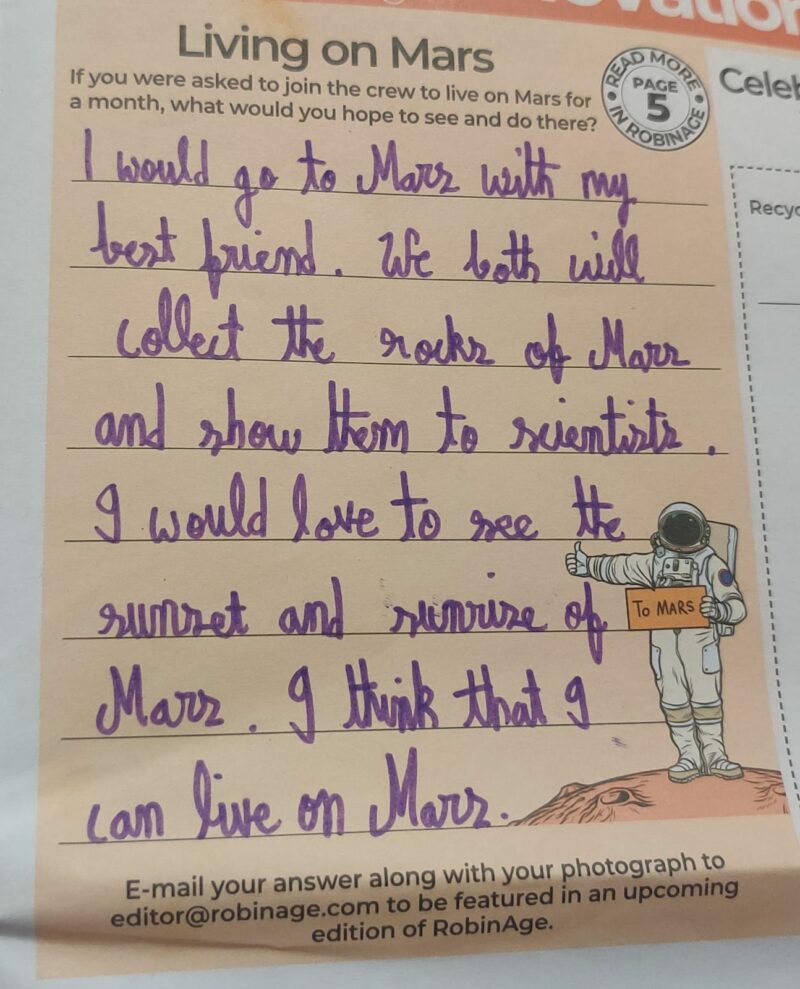 ovation
Living on Mars
If you were asked to join the crew to live on Mars for
a month, what would you hope to see and do there?
READ MORE
PAGE
5
IN ROBINAGE
Celeb
Recyc
I would go to Mars with my
best friend. We both will
collect the rocks of Mars
and show them to scientists.
I would love to see the
sunset and sunrise of
Mars. I think that I
can live on Mars.
To MARS
E-mail your answer along with your photograph to
editor@robinage.com to be featured in an upcoming
edition of RobinAge.